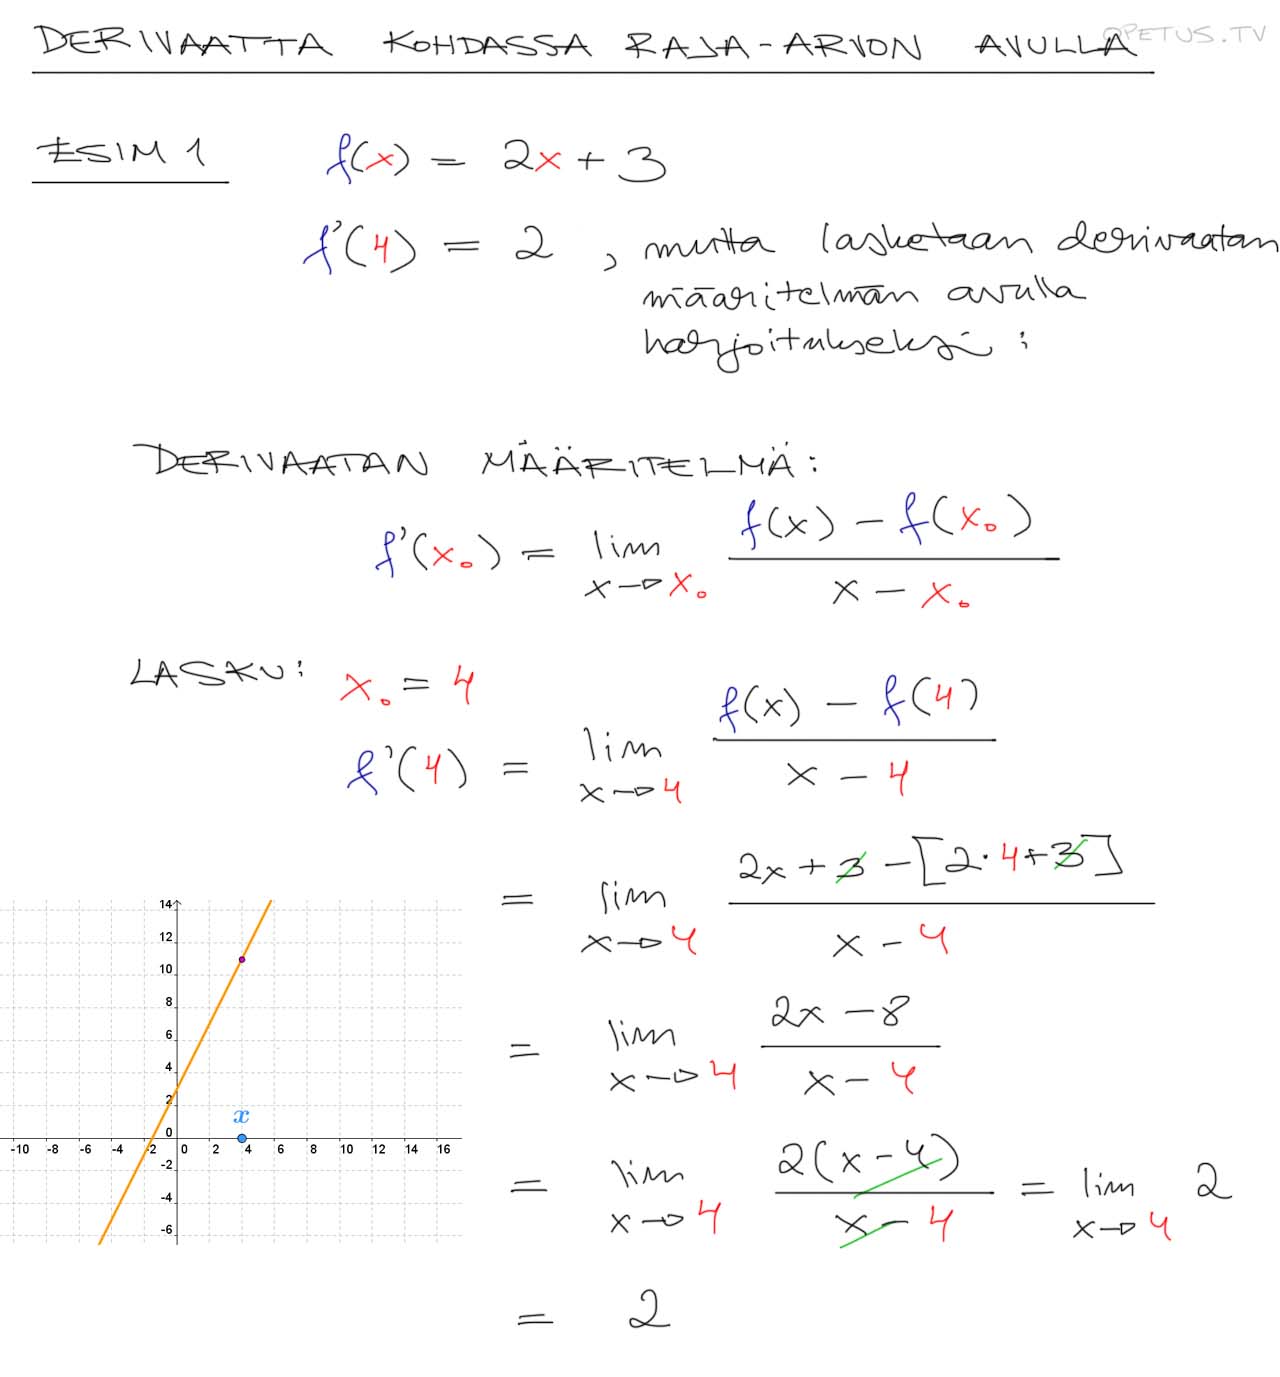 DERIVAATTA KOHDASSA RAJA-ARVON AVULLA
OPETUS.TV
ESIM 1 f(x) = 2x + 3
f'(4) = 2 , mutta lasketaan derivaatan
määritelmän avulla
harjoitukseksi :
DERIVAATAN MÄÄRITELMÄ:
f(x) - f(x₀)
f'(x₀) = lim
x→x₀ x - x₀
LASKU: x₀ = 4
f(x) - f(4)
f'(4) = lim
x→4 x - 4
2x + 3 - [2·4+3]
= lim
x→4 x - 4
2x - 8
= lim
x→4 x - 4
2(x-4)
= lim = lim 2
x→4 x - 4 x→4
= 2
14
12
10
8
6
4
2
0
x
-10 -8 -6 -4 -2 0 2 4 6 8 10 12 14 16
-2
-4
-6